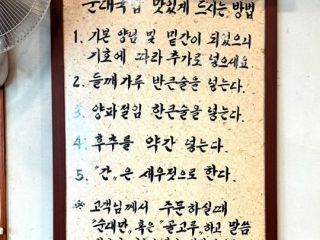 순대국밥 맛있게 드시는 방법
1. 기본 양념 및 밑간이 되었으니
기호에 따라 추가로 넣으세요
2. 들깨가루 반큰술을 넣는다.
3. 양파절임 한큰술을 넣는다.
4. 후추를 약간 넣는다.
5. "간"은 새우젓으로 한다.
※ 고객님께서 주문하실때
"순대만", 혹은 "골고루", 하고 말씀